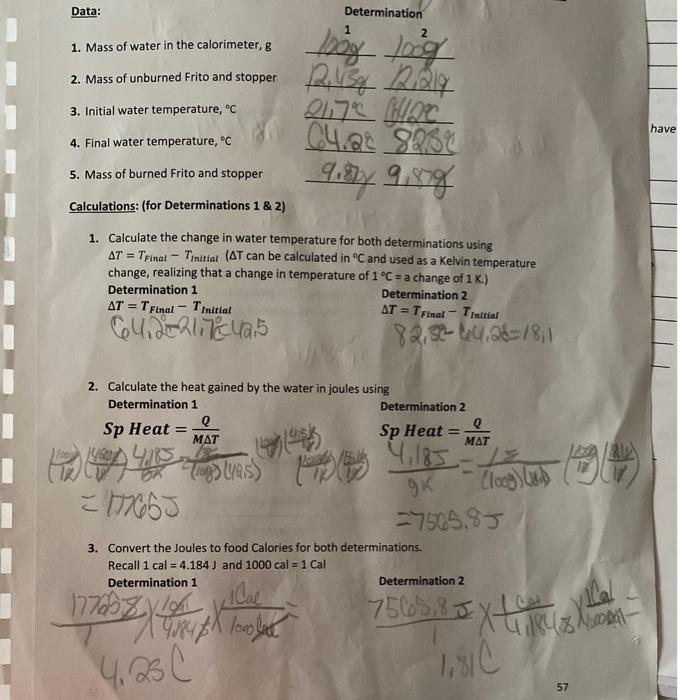 Data:
Determination
1 2
1. Mass of water in the calorimeter, g 100g 100g
2. Mass of unburned Frito and stopper 12.43g 12.21g
3. Initial water temperature, °C 21.7°C 64.2°C
have
4. Final water temperature, °C 64.2°C 82.3°C
5. Mass of burned Frito and stopper 9.87g 9.87g
Calculations: (for Determinations 1 & 2)
1. Calculate the change in water temperature for both determinations using
ΔT = TFinal − TInitial (ΔT can be calculated in °C and used as a Kelvin temperature
change, realizing that a change in temperature of 1 °C = a change of 1 K.)
Determination 1 Determination 2
ΔT = TFinal − TInitial ΔT = TFinal − TInitial
64.2°-21.7°=42.5 82.3°-64.2°=18.1
2. Calculate the heat gained by the water in joules using
Determination 1 Determination 2
Sp Heat = Q/MΔT Sp Heat = Q/MΔT
4.18J
gK (100g)(42.5)
4.18J = 
gK (100g)(18.1)
= 17765J =7565.8J
3. Convert the Joules to food Calories for both determinations.
Recall 1 cal = 4.184 J and 1000 cal = 1 Cal
Determination 1 Determination 2
17765J x 1cal x 1Cal = 7565.8J x 1cal x 1Cal =
1 4.184J 1000cal 1 4.184J 1000cal
4.25C 1.81C
57